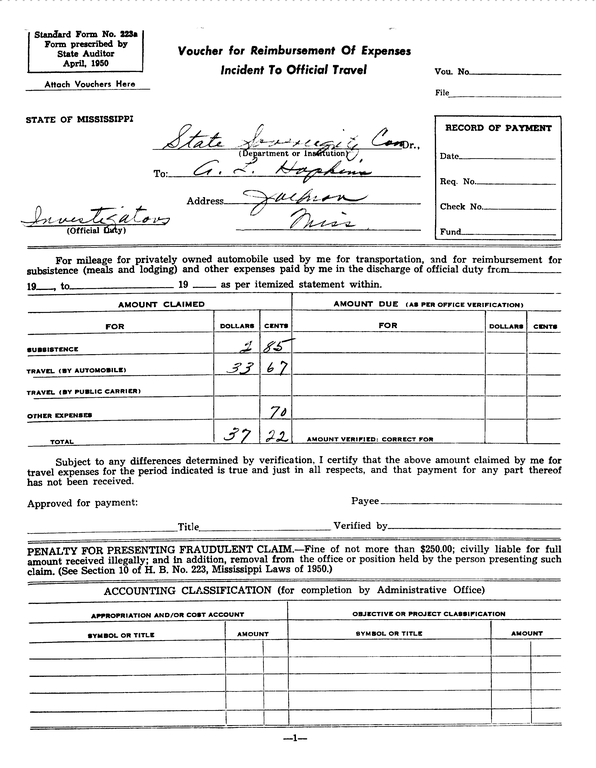 Standard Form No. 223a
Form prescribed by
State Auditor
April, 1950
Attach Vouchers Here
Voucher for Reimbursement Of Expenses
Incident To Official Travel
Vou. No.
File
STATE OF MISSISSIPPI
State Sovereignty Com Dr.,
(Department or Institution)
To: A. L. Hopkins
Address Jackson
Miss
Investigators
(Official Duty)
RECORD OF PAYMENT
Date
Req. No.
Check No.
Fund
For mileage for privately owned automobile used by me for transportation, and for reimbursement for
subsistence (meals and lodging) and other expenses paid by me in the discharge of official duty from
19__, to__ 19__ as per itemized statement within.
AMOUNT CLAIMED AMOUNT DUE (AS PER OFFICE VERIFICATION)
FOR DOLLARS CENTS FOR DOLLARS CENTS
SUBSISTENCE 2 85
TRAVEL (BY AUTOMOBILE) 33 67
TRAVEL (BY PUBLIC CARRIER)
OTHER EXPENSES 70
TOTAL 37 22 AMOUNT VERIFIED: CORRECT FOR
Subject to any differences determined by verification, I certify that the above amount claimed by me for
travel expenses for the period indicated is true and just in all respects, and that payment for any part thereof
has not been received.
Approved for payment: Payee
Title Verified by
PENALTY FOR PRESENTING FRAUDULENT CLAIM.—Fine of not more than $250.00; civilly liable for full
amount received illegally; and in addition, removal from the office or position held by the person presenting such
claim. (See Section 10 of H. B. No. 223, Mississippi Laws of 1950.)
ACCOUNTING CLASSIFICATION (for completion by Administrative Office)
APPROPRIATION AND/OR COST ACCOUNT OBJECTIVE OR PROJECT CLASSIFICATION
SYMBOL OR TITLE AMOUNT SYMBOL OR TITLE AMOUNT
—1—